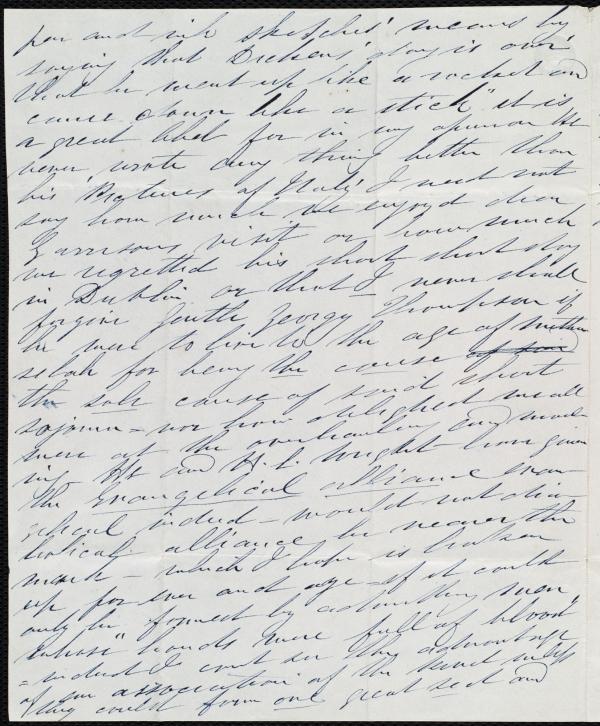 pen and ink sketches' means by
saying that Dickens' glory is over
that he went up like a rocket and
came down like a stick" it is
a great libel for in my opinion He
never wrote any thing better than
his 'Pictures of Italy' I need not
say how much we enjoyd dear
Garrisons visit or how much
we regretted his short short stay
in Dublin or that I never shall
forgive gentle George Thompson if
he were to live to the age of methu
selah for being the cause
the sole cause of said short
sojourn - nor how delighted we all
were at the overhauling and
ing He and H. C. Wright have given
the evangelical alliance evan
gelical indeed - would not dia
bolical alliance be nearer the
mark - which I hope is broken
up for ever and aye - if it could
only be formed by admitting men
whose "hands were full of blood"
- indeed I cant see the advantage
of an association of the kind unless
they could form one great sect and